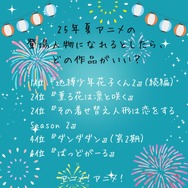 25年夏アニメの
登場人物になれるとしたら、
どの作品がいい？
1位 『地縛少年花子くん2』(続編)
2位 『薫る花は凛と咲く』
3位 『その着せ替え人形は恋をする
Season 2』
4位 『ダンダダン』(第2期)
5位 『ばっどがーる』
アニメ！アニメ！